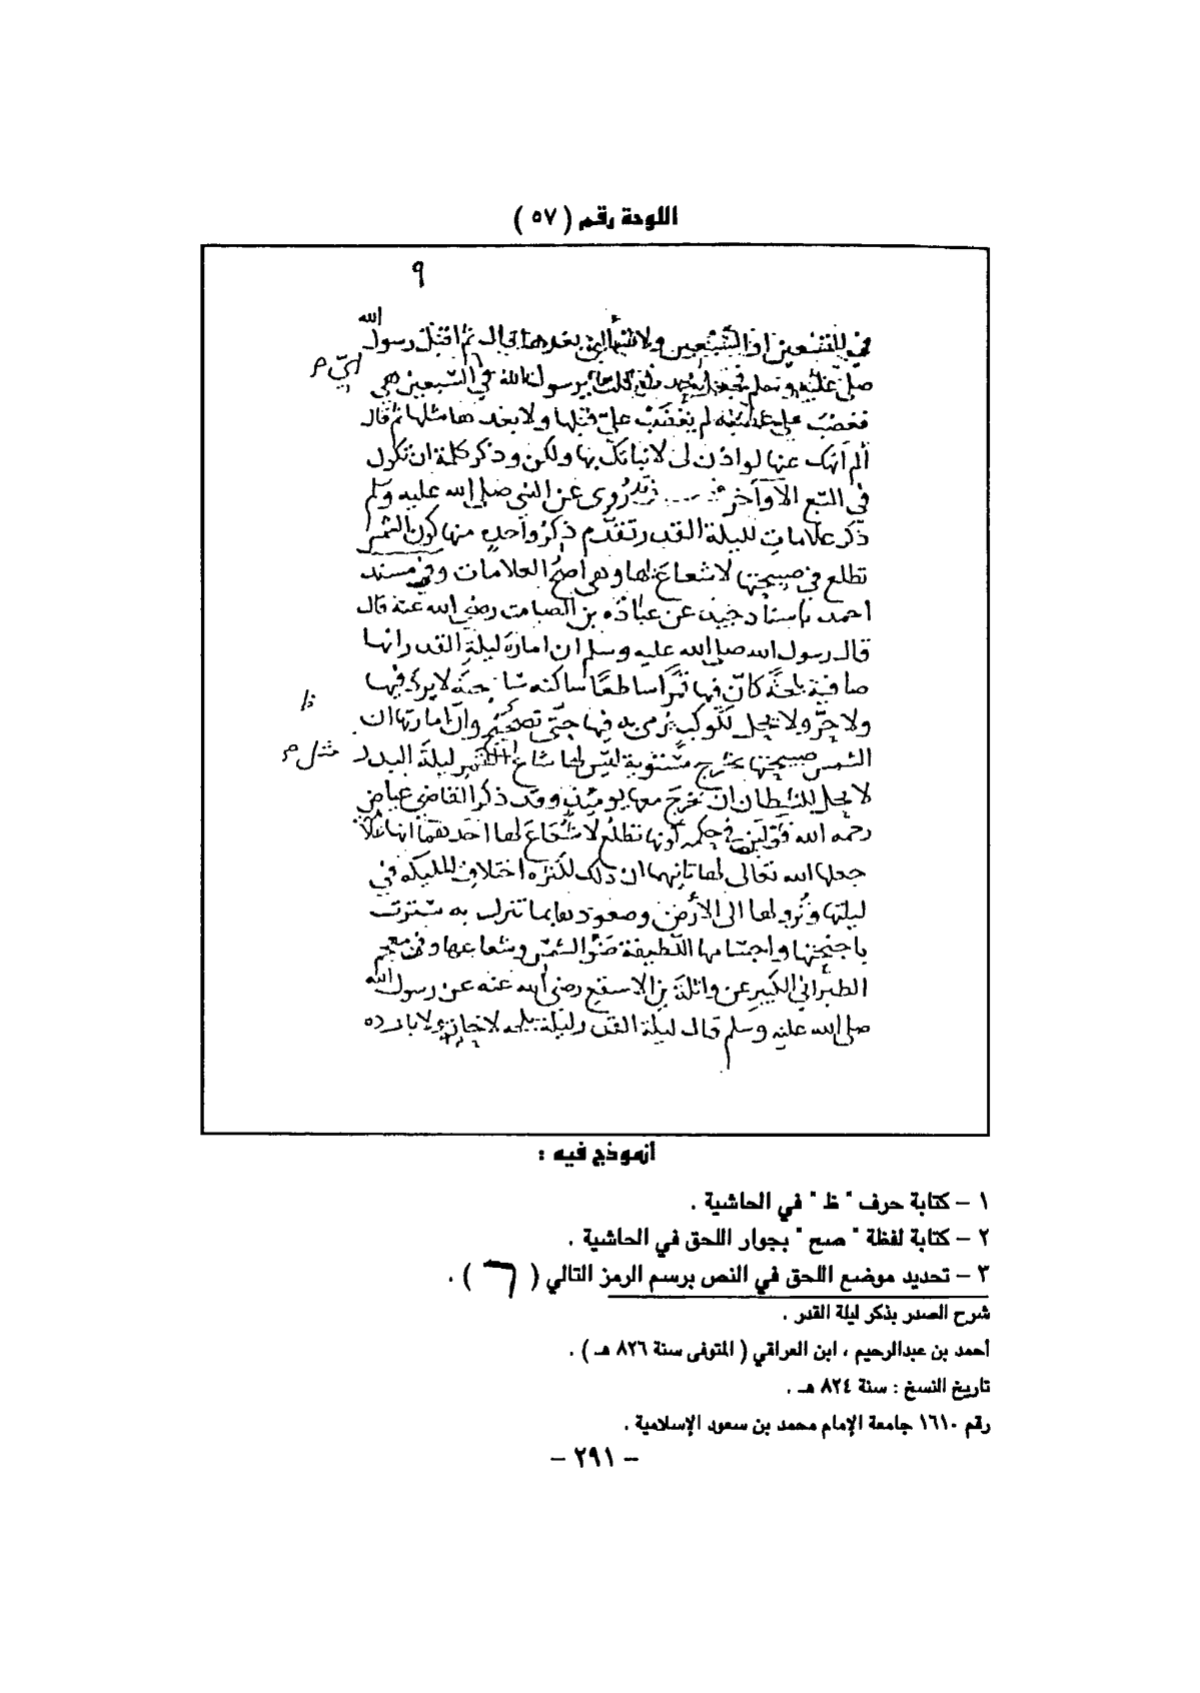 اللوحة رقم ( ٥٧ )
٩
في التسعين او السبعين ولا بعدها قال ثم اقبل رسول الله
صلى عليه وسلم يرسول الله في السبعين هي
ايّ صح
فغضب علي لم يغضب عليّ قبلها ولا بعدها مثلها ثم قال
ألم أنهك عنها لو اذن لي لانباتك بها ولكن وذكر كلمة ان تكون
في السبع الأواخر رُوي عن النبي صلى الله عليه وسلم
ذكر علامات لليلة القدر تقدّم ذكر واحدٍ منها كون الشمس
تطلع في صبيحتها لا شعاع لها وهي اصح العلامات وفي مسند
احمد باسناد جيد عن عبادة بن الصامت رضي الله عنه قال
قال رسول الله صلى الله عليه وسلم ان امارة ليلة القدر انها
صافية بلجة كانّ فيها قمرًا ساطعًا ساكنة لا برد فيها
ظ
ولا حرّ ولا يحل لكوكب يُرمى به فيها حتى تصبح وانّ امارتها ان
الشمس صبيحتها تخرج مستوية ليس لها شعاع القمر ليلة البدر
مثل صح
لا يحل للشيطان ان يخرج معها يومئذ وقد ذكر القاضي عياض
رحمه الله قولين في حكمة كونها تطلع لا شعاع لها احدهما انها علامة
جعلها الله تعالى لها ثانيهما ان ذلك لكثرة اختلاف المليكة في
ليلتها ونزولها الى الأرض وصعودها بما تنزل به سترت
باجنحتها واجسامها اللطيفة ضوء الشمس وشعاعها وفي معجم
الطبراني الكبير عن واثلة بن الاسقع رضي الله عنه عن رسول الله
صلى الله عليه وسلم قال ليلة القدر ليلة بلجة لا حارة ولا باردة
أنموذج فيه :
١ – كتابة حرف " ظ " في الحاشية .
٢ – كتابة لفظة " صح " بجوار اللحق في الحاشية .
٣ – تحديد موضع اللحق في النص برسم الرمز التالي ( ) .
شرح الصدر بذكر ليلة القدر .
أحمد بن عبدالرحيم ، ابن العراقي ( المتوفى سنة ٨٢٦ هـ ) .
تاريخ النسخ : سنة ٨٢٤ هـ .
رقم ١٦١٠ جامعة الإمام محمد بن سعود الإسلامية .
– ٢٩١ –